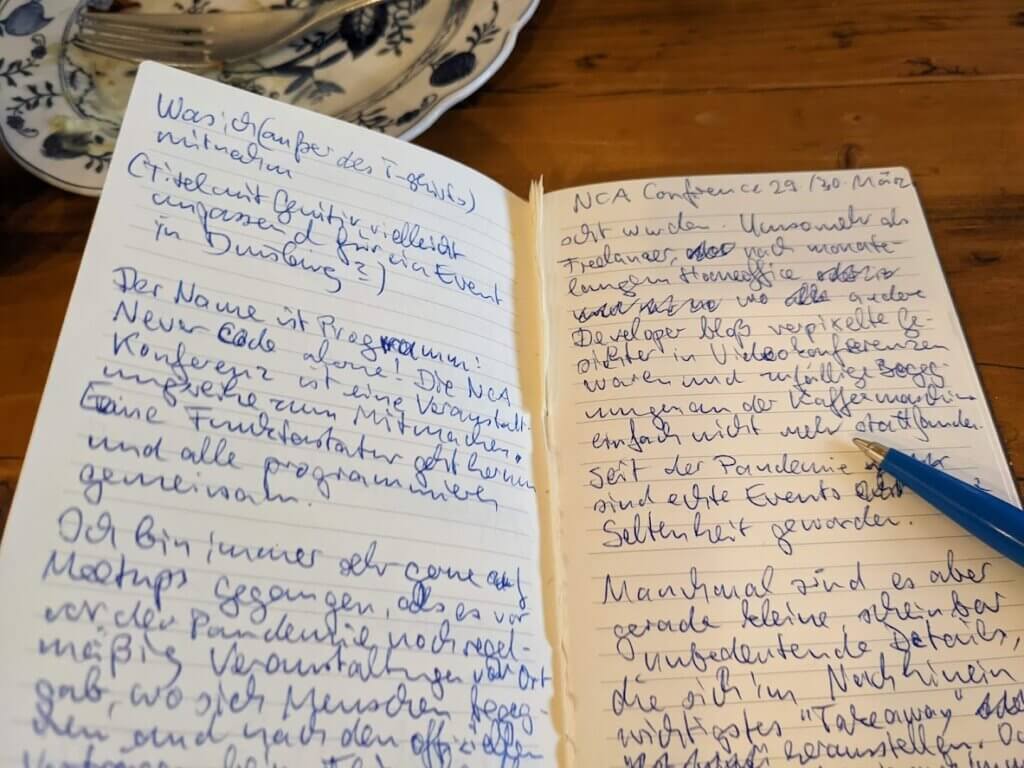 Was ich (außer des T-Shirts)
mitnahm
(Titel mit Genitiv vielleicht
unpassend für ein Event
in Duisburg?)
Der Name ist Programm:
Never Code alone! Die NCA
Konferenz ist eine Veranstalt-
ungsreihe zum Mitmachen.
Eine Funktastatur geht herum
und alle programmieren
gemeinsam.
Ich bin immer sehr gerne auf
Meetups gegangen, als es vor
vor der Pandemie noch regel-
mäßig Veranstaltungen vor Ort
gab, wo sich Menschen begeg-
nen und nach den offiziellen
NCA Conference 29./30. März
acht wurden. Umsomehr als
Freelancer, nach monate-
langem Homeoffice
wo andere
Developer bloß verpixelte Ge-
sichter in Videokonferenzen
waren und zufällige Begeg-
nungen an der Kaffeemaschine
einfach nicht mehr stattfanden.
Seit der Pandemie
sind echte Events
Seltenheit geworden.
Manchmal sind es aber
gerade kleine, scheinbar
unbedeutende Details,
die sich im Nachhinein
wichtigstes "Takeaway"
herausstellen.